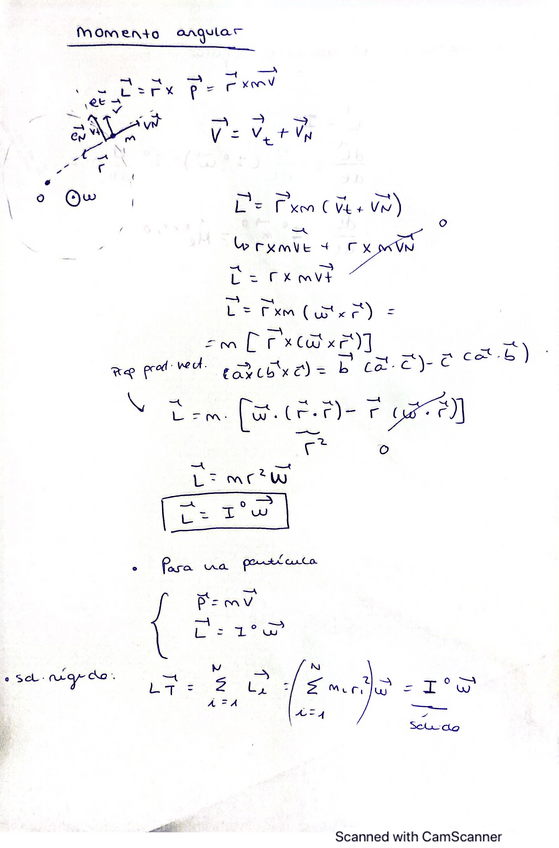 momento angular
L⃗ = r⃗ x p⃗ = r⃗ x m v⃗
et v⃗
eN vt m vN
r⃗
O ⊙ω
V⃗ = V⃗t + V⃗N
L⃗ = r⃗ x m (v⃗t + v⃗N)
↳ r x m v⃗t + r x m v⃗N 0
L⃗ = r x m v⃗t
L⃗ = r⃗ x m (ω⃗ x r⃗) =
= m [ r⃗ x (ω⃗ x r⃗)]
Prop prod. vect. (a⃗ x (b⃗ x c⃗) = b⃗ (a⃗ · c⃗) - c⃗ (a⃗ · b⃗)
L⃗ = m · [ω⃗ · (r⃗ · r⃗) - r⃗ (ω⃗ · r⃗)]
r² 0
L⃗ = m r² ω⃗
L⃗ = I° ω⃗
• Para una partícula
p⃗ = m v⃗
L⃗ = I° ω⃗
• sol. rígido: L⃗T = Σ N i=1 L⃗i = (Σ N i=1 mi ri²) ω⃗ = I° ω⃗
sólido
Scanned with CamScanner